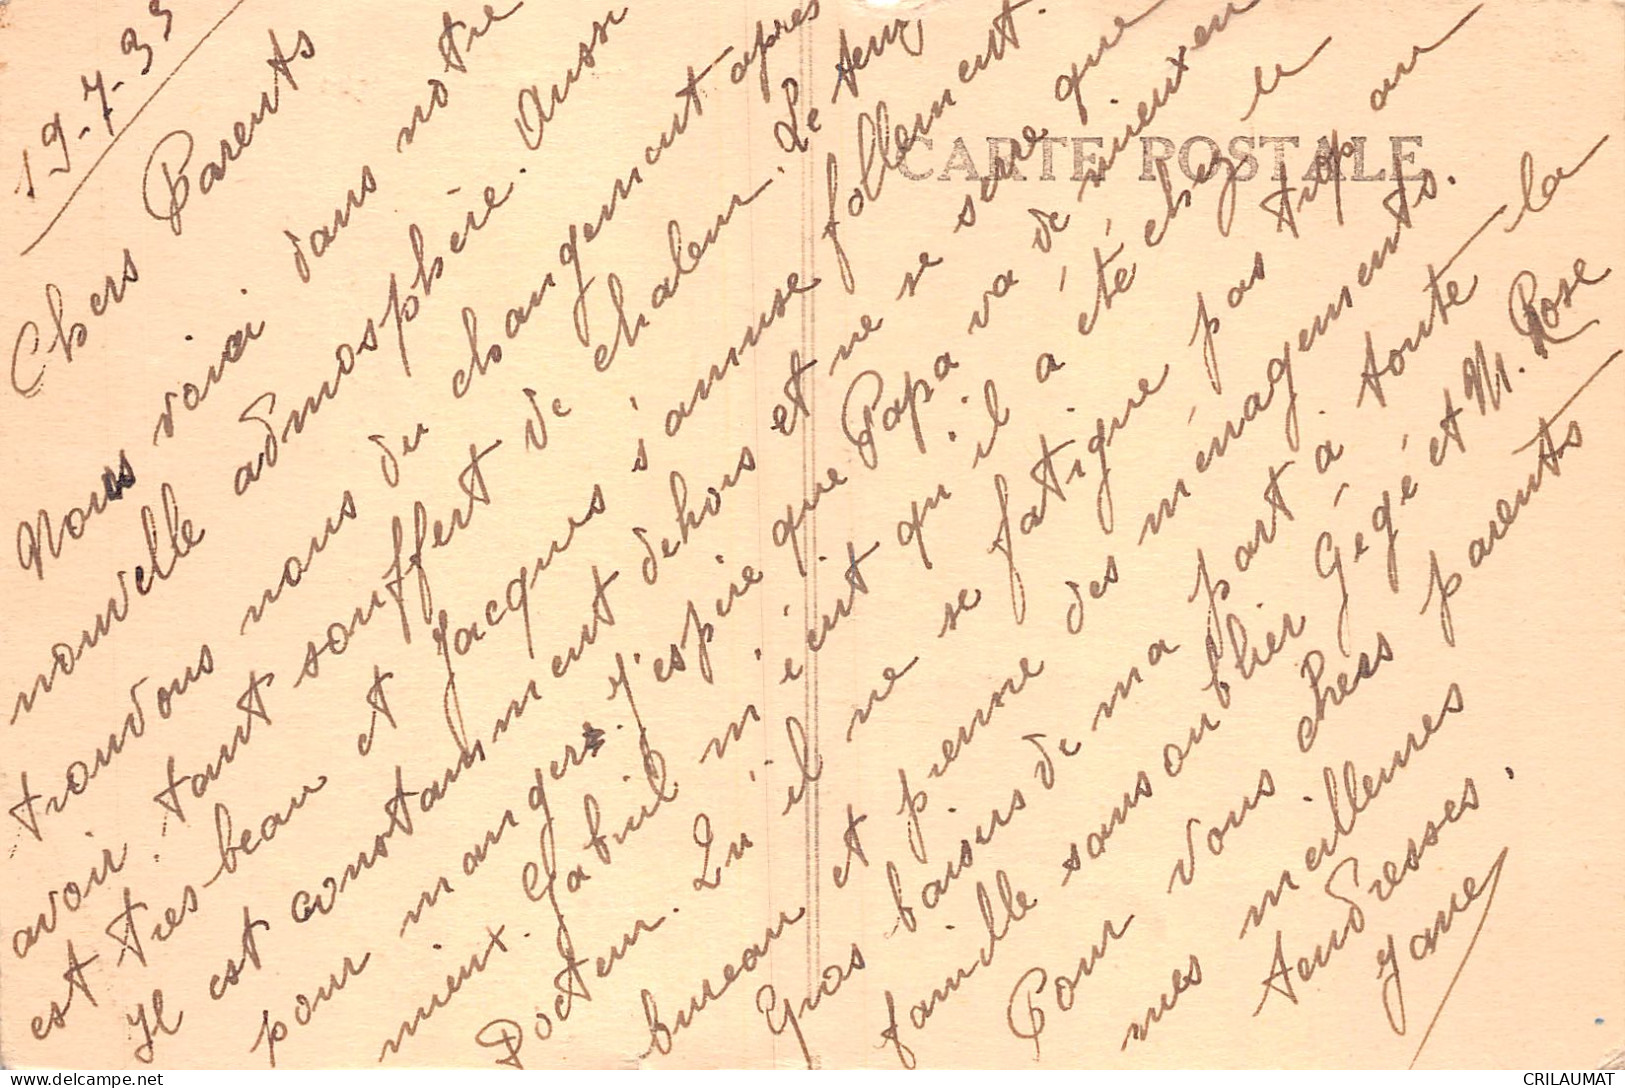 19-7-33
Chers Parents
Nous voici dans notre
nouvelle admosphère. Aussi
trouvons nous du changement après
avoir tant souffert de chaleur. Le temps
est très beau et Jacques s'amuse follement.
Il est constamment dehors et ne se serre que
pour manger. J'espère que Papa va de mieux en
mieux. Gabriel m'écrit qu'il a été chez le
Docteur. Qu'il ne se fatigue pas trop au
bureau et prenne des ménagements.
Gros baisers de ma part à toute la
famille sans oublier Gégé et M. Rose
Pour vous chers parents
mes meilleures
tendresses.
Jane
CARTE POSTALE
CRILAUMAT